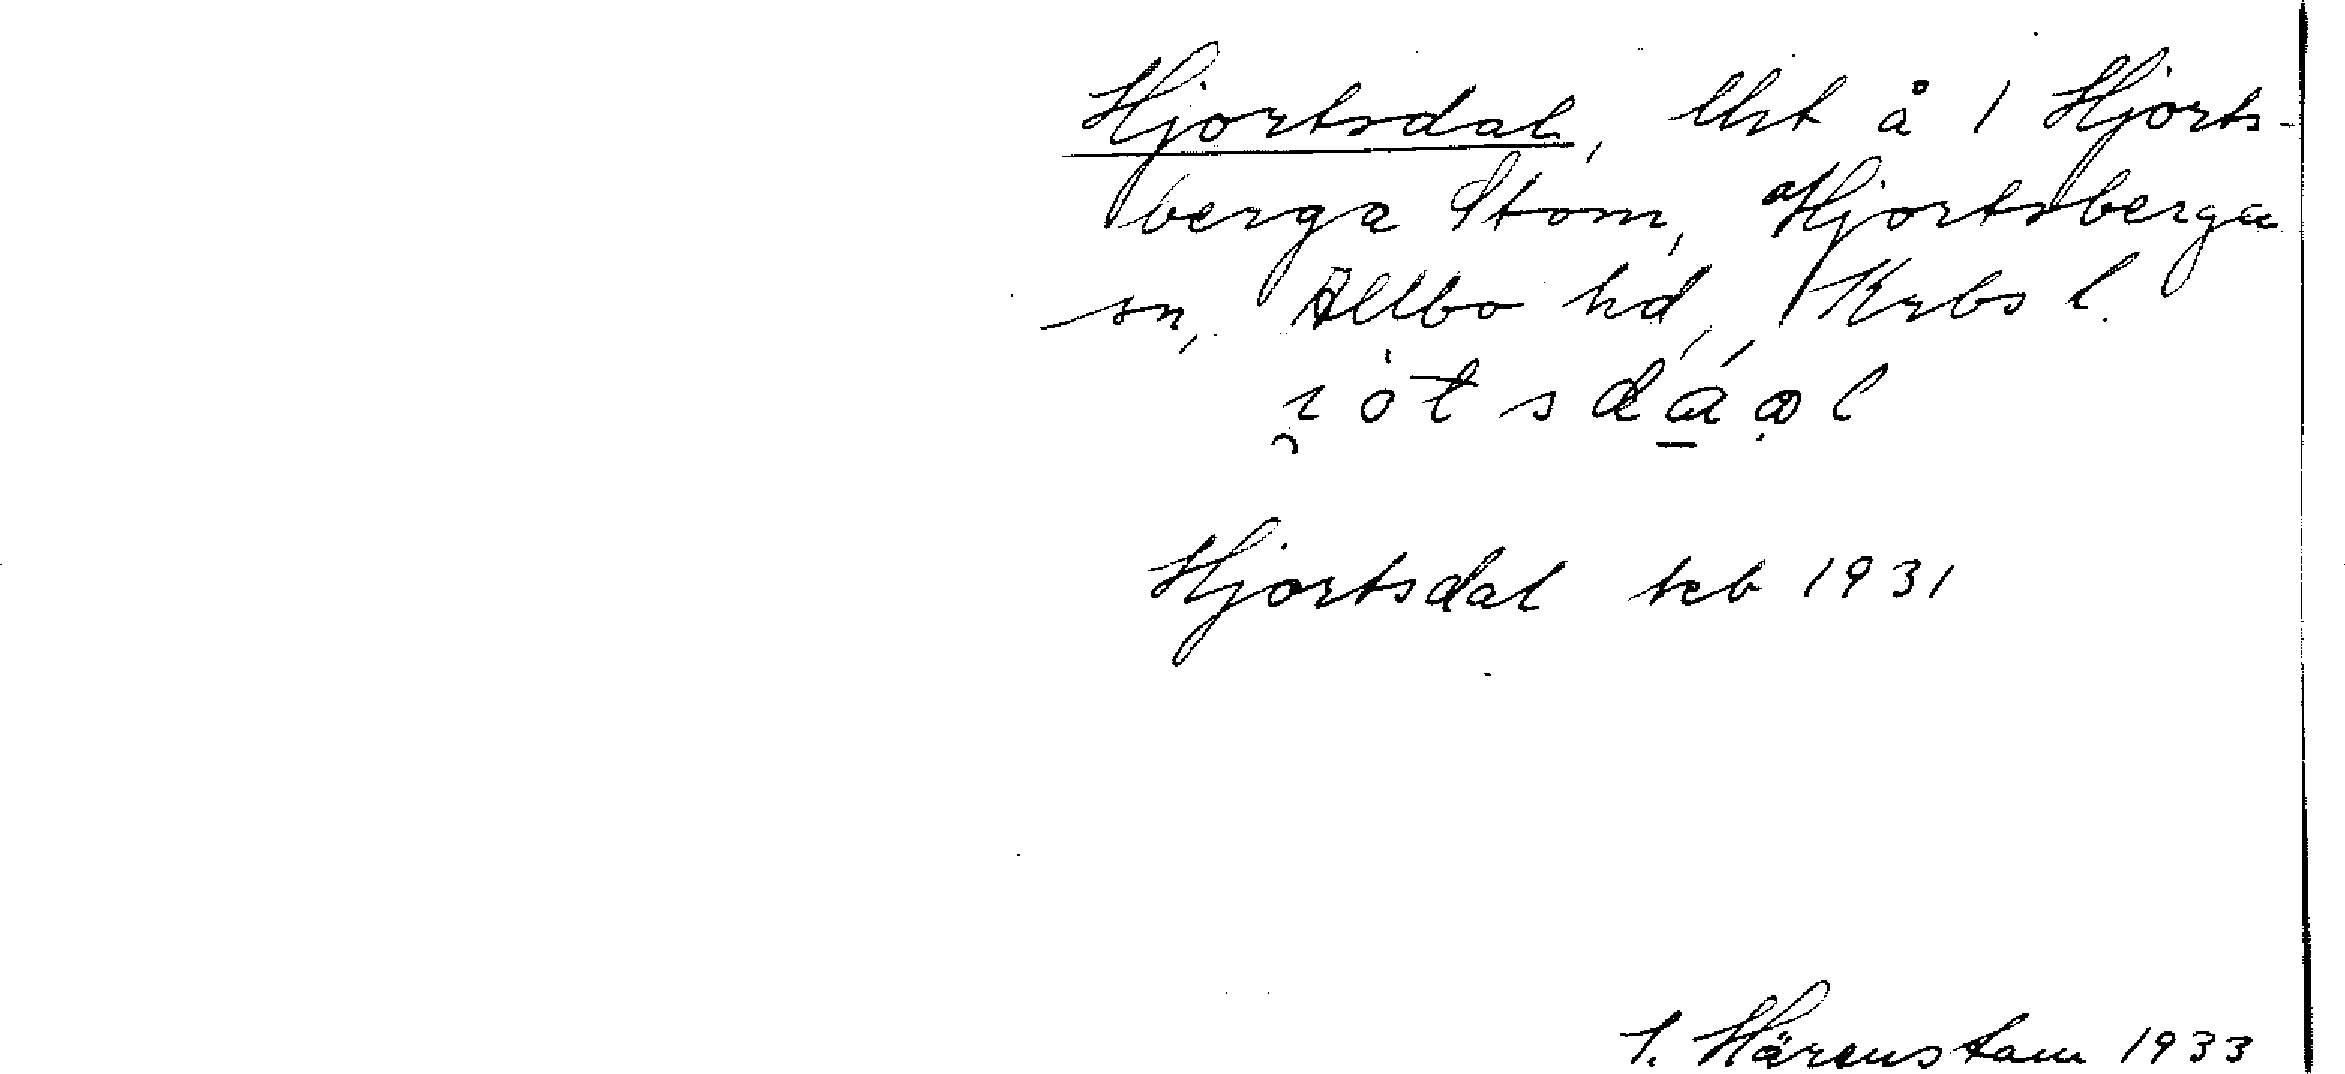 Hjortsdal, lht å 1 Hjorts-
berga Stom, Hjortsberga
sn, Allbo hd, Krbs l.
Hjortsdal jeb 1931
1. Härenstam 1933